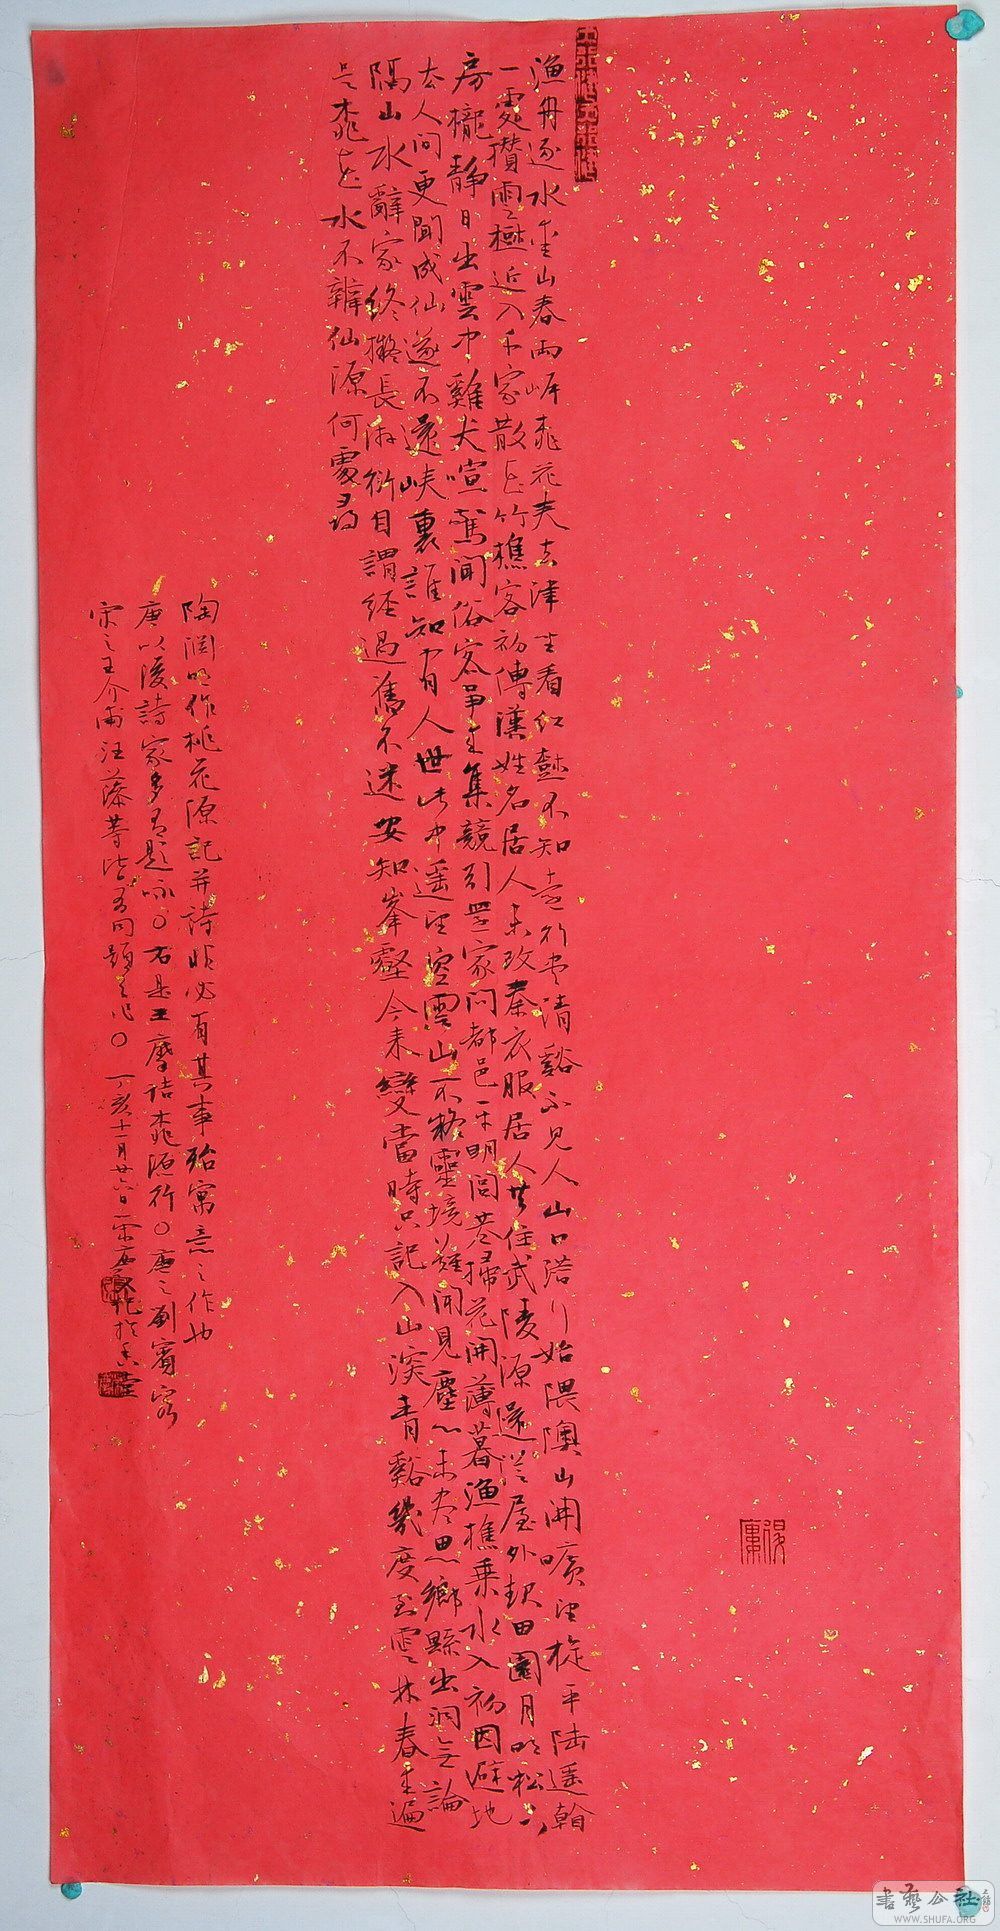 漁舟逐水愛山春兩岸桃花夾去津坐看紅樹不知遠行盡清谿不見人山口潛行始隈隩山開曠望旋平陸遙看
一處攢雲樹近入千家散花竹樵客初傳漢姓名居人未改秦衣服居人共住武陵源還從屋外起田園月明松下
房櫳靜日出雲中雞犬喧驚聞俗客爭來集競引還家問都邑平明閭巷掃花開薄暮漁樵乘水入初因避地
去人間更聞成仙遂不還峽裏誰知有人世此中遙望空雲山不疑靈境難聞見塵心未盡思鄉縣出洞無論
隔山水辭家終擬長游衍自謂經過舊不迷安知峯壑今來變當時只記入山深青谿幾度到雲林春來遍
是桃花水不辨仙源何處尋
陶淵明作桃花源記并詩非必有其事殆寓意之作也
唐以後詩家多有題詠〇右是王摩詰桃源行〇唐之劉賓客
宋之王介甫汪藻等皆有同題之作〇丁亥十一月廿六日
書藝公社
WWW.SHUFA.ORG